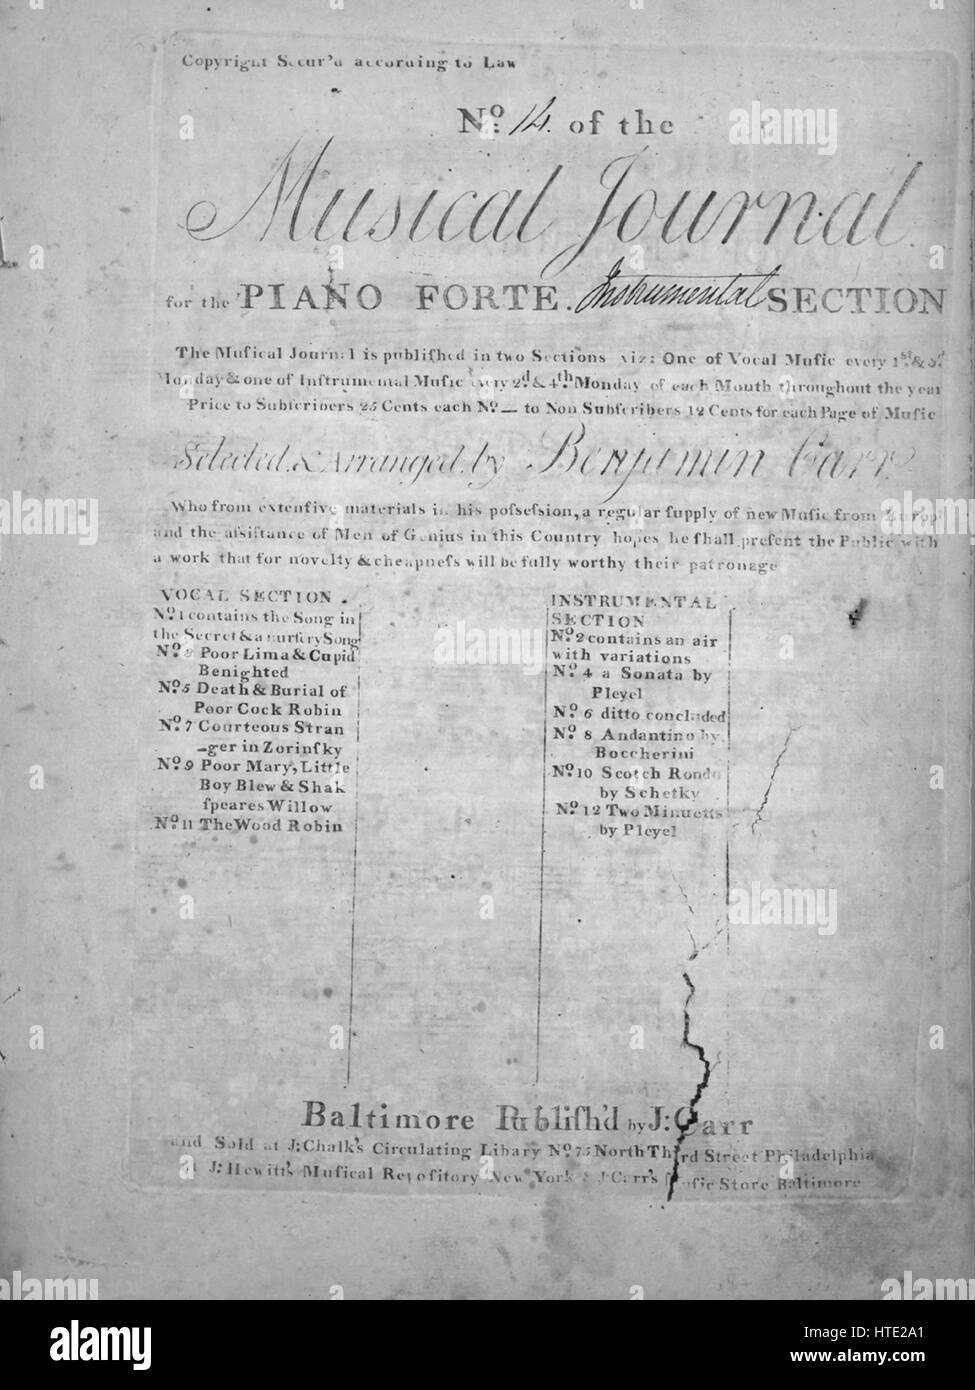 Copyright Secur'd according to Law
No. 14. of the
Musical Journal.
for the PIANO FORTE. Instrumental SECTION
The Muſical Journal is publiſhed in two Sections viz: One of Vocal Muſic every 1st & 3d
Monday & one of Inſtrumental Muſic every 2d & 4th Monday of each Month throughout the year
Price to Subſcribers 25 Cents each No — to Non Subſcribers 12 Cents for each Page of Muſic
Selected & Arranged by Benjamin Carr
Who from extenſive materials in his poſseſsion, a regular ſupply of new Muſic from Europ
and the aſsiſtance of Men of Genius in this Country hopes he ſhall preſent the Public with
a work that for novelty & cheapneſs will be fully worthy their patronage
VOCAL SECTION.
No. 1 contains the Song in
the Secret & a nurſery Song
No. 3 Poor Lima & Cupid
Benighted
No. 5 Death & Burial of
Poor Cock Robin
No. 7 Courteous Stran
-ger in Zorinſky
No. 9 Poor Mary, Little
Boy Blew & Shak
ſpeares Willow
No. 11 The Wood Robin
INSTRUMENTAL
SECTION
No. 2 contains an air
with variations
No. 4 a Sonata by
Pleyel
No. 6 ditto concluded
No. 8 Andantino by
Boccherini
No. 10 Scotch Rondo
by Schetky
No. 12 Two Minuetts
by Pleyel
Baltimore Publiſh'd by J: Carr
and Sold at J: Chalk's Circulating Libary No. 75 North Third Street Philadelphia
J: Hewitt's Muſical Repoſitory New York & J Carr's Muſic Store Baltimore
alamy
a
alamy stock photo
HTE2A1
www.alamy.com